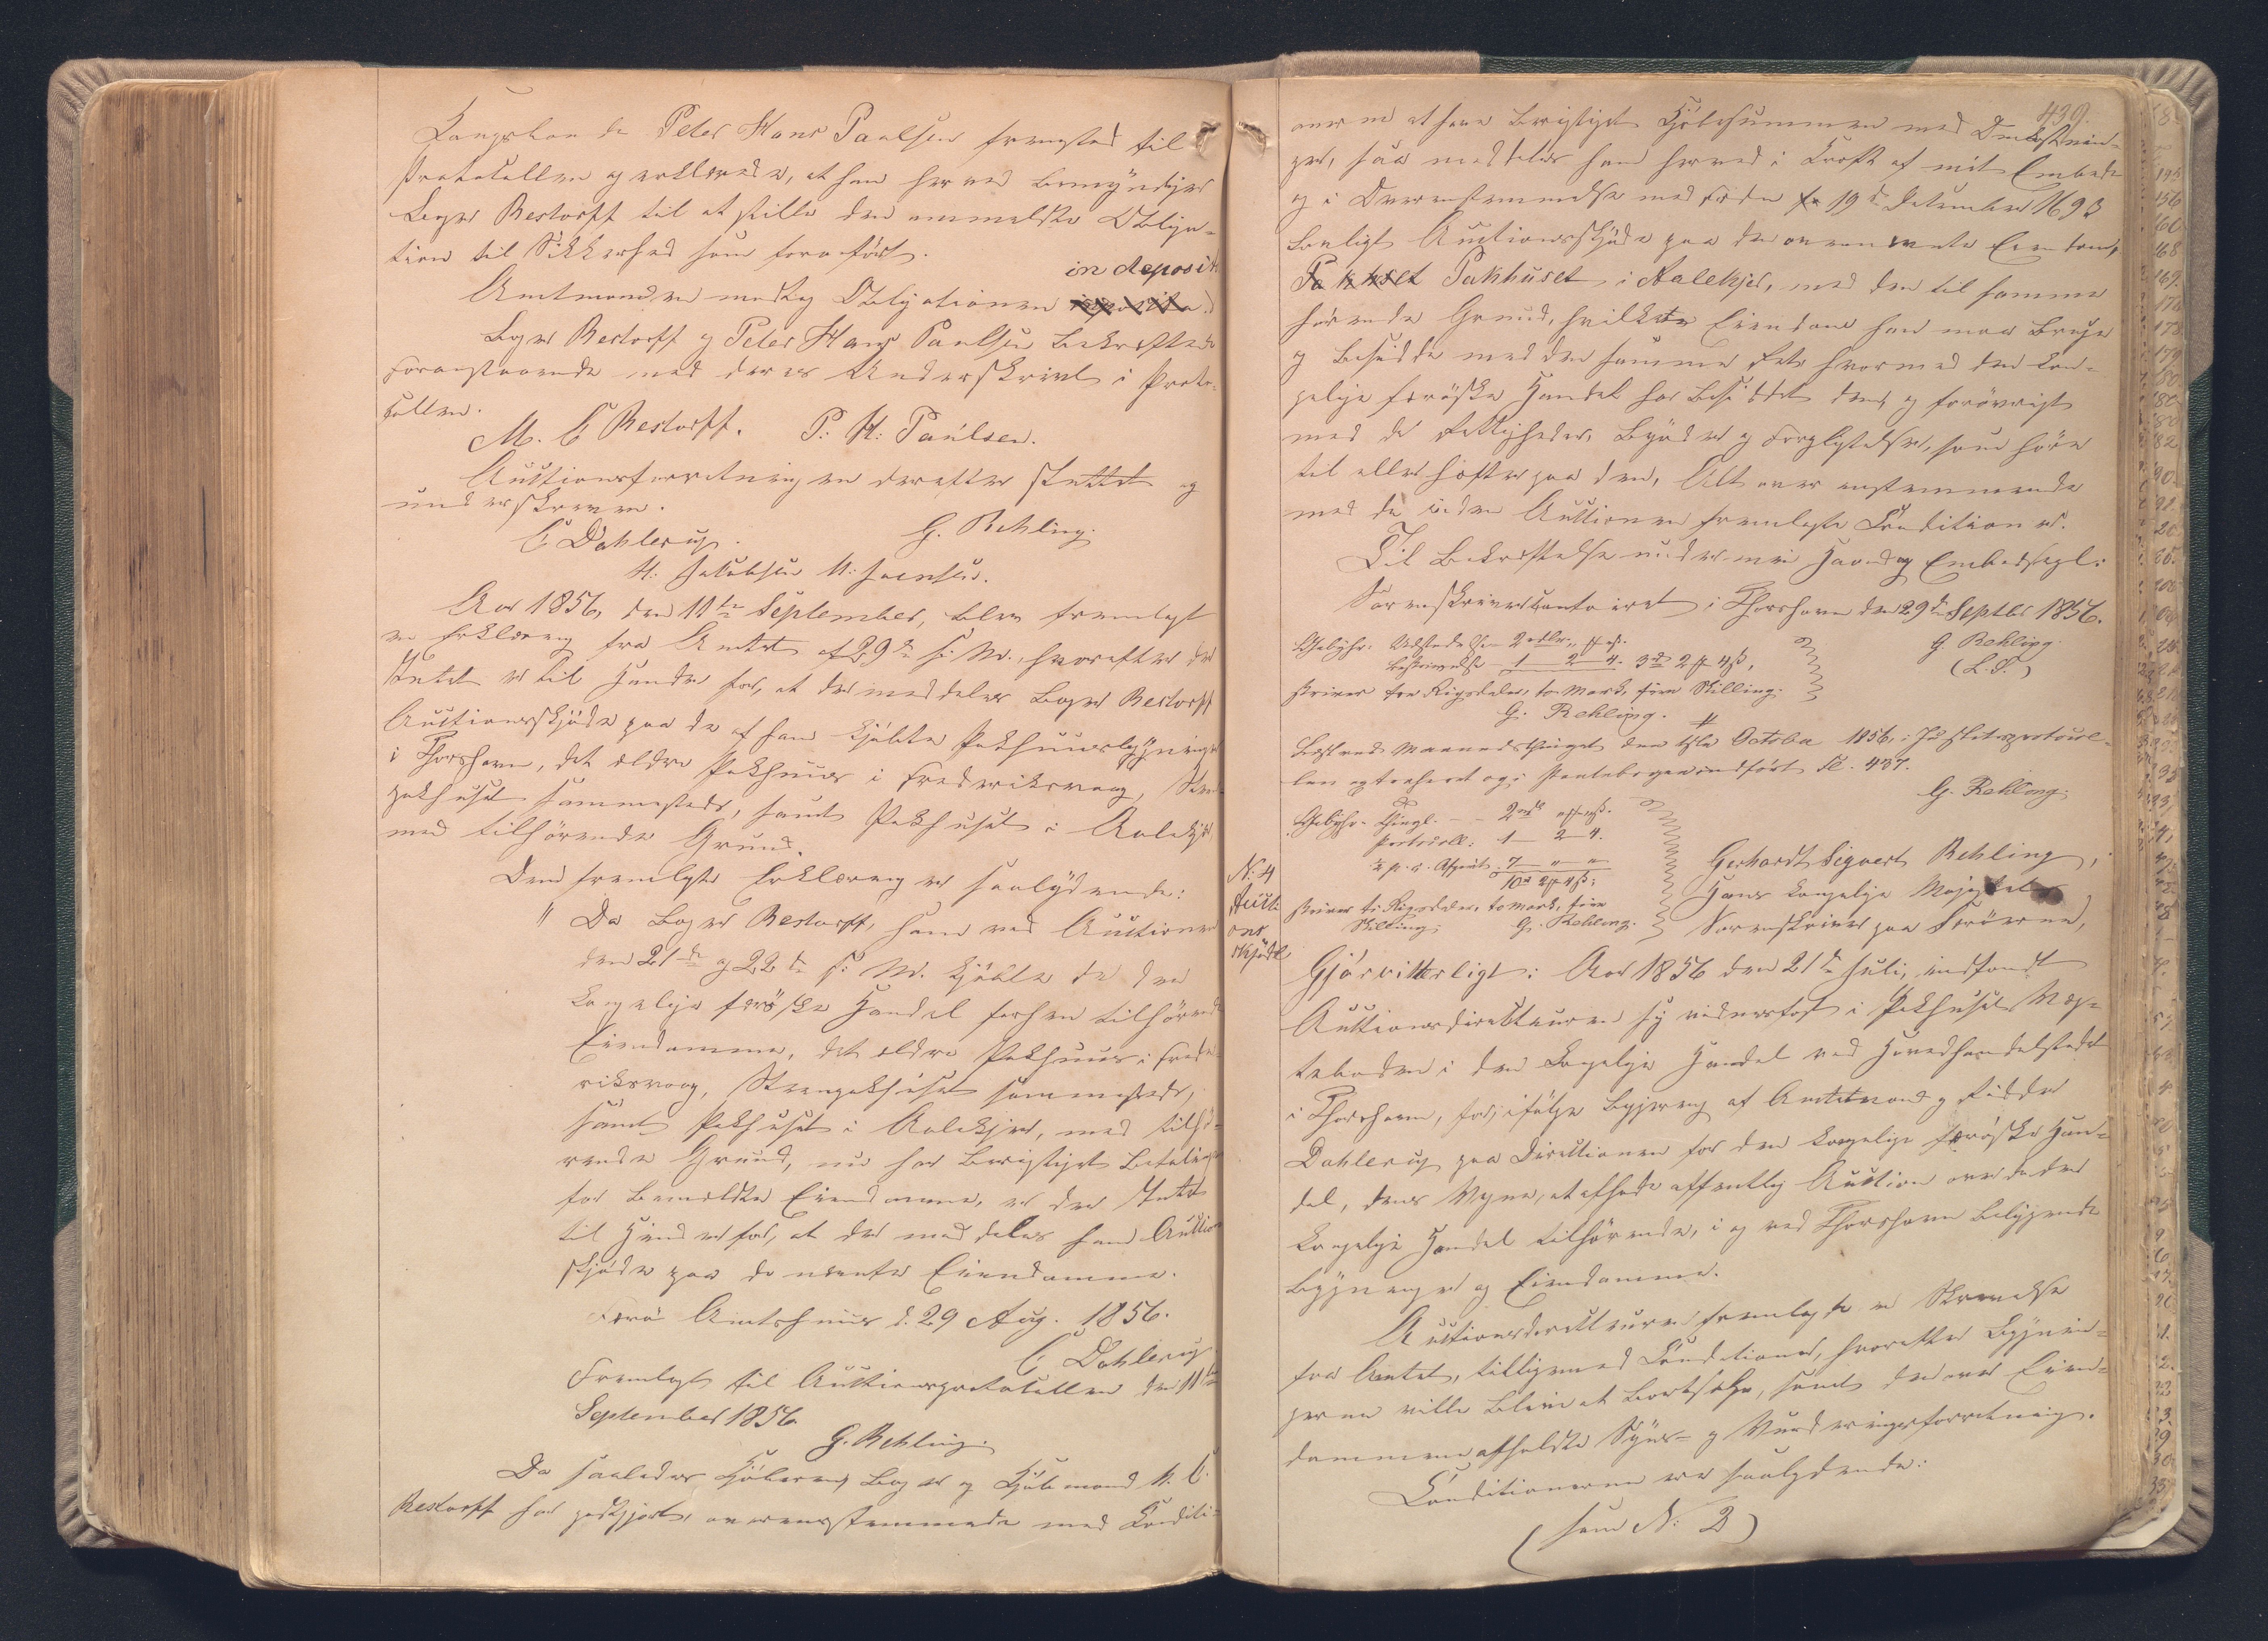 Kongsbonde Peter Hans Paulsen fremstod til
Protokollen og erklærede, at han herved bemyndiger
Bager Restorff til at stille den anmeldte Obliga-
tion til Sikkerhed som foranført.
in deposito
Amtmanden modtog Obligationen
Bager Restorff og Peter Hans Paulsen bekræftede
Foranstaaende med deres Underskrivt i Proto-
kollen.
M. C. Restorff. P: H: Paulsen.
Auctionsforretningen derefter sluttet og
underskreven.
C Dahlerup. G. Rehling.
H: Jakobsen M: Joensen.
Aar 1856, den 11te September, blev fremlagt
en Erklæring fra Amtet af 29de f: M., hvorefter der
Intet er til Hinder for, at der meddeles Bager Restorff
Auctionsskjøde paa de af ham kjøbte Pakhuusbygninger
i Thorshavn, det ældre Pakhuus i Frederiksvaag, Steen-
pakhuset sammesteds, samt Pakhuset i Aalekjer
med tilhørende Grund.
Den fremlagte Erklæring er saalydende:
" Da Bager Restorff, som ved Auctionen
den 21de og 22de f: M. kjøbte de den
kongelige færøske Handel forhen tilhørende
Eiendomme, det ældre Pakhuus i Frede-
riksvaag, Steenpakhuset sammesteds,
samt Pakhuset i Aalekjer, med tilhø-
rende Grund, nu har berigtiget Betalingen
for bemeldte Eiendomme, er der Intet
til Hinder for, at der meddeles ham Auctions-
skjøde paa de nævnte Eiendomme.
Færø Amtshuus d. 29 Aug. 1856.
C Dahlerup
Fremlagt til Auctionsprotokollen den 11te
September 1856
G. Rehling.
Da saaledes Kjøberen, Bager og Kjøbmand M. C.
Restorff har godtgjort, overensstemmende med Conditi-
439.
onerne at have berigtiget Kjøbesummen med Omkostnin-
ger, saa meddeles ham herved i Kraft af mit Embede
og i Overensstemmelse med Frdn 19de Decemember 1693
lovligt Auctionsskjøde paa den ovennævnte Eiendom,
Pakhuset i Aalekjer, med den til samme
hørende Grund, hvilken Eiendom han maa bruge
og besidde med den samme Ret hvormed den kon-
gelige færøske Handel har besiddet den, og forøvrigt
med de Rettigheder, Byrder og Forpligtelser, som høre
til eller hæfte paa den, Alt overensstemmende
med de under Auctionen fremlagte Conditioner.
Til Bekræftelse under min Haand og Embedssegl.
Sorenskrivercontoiret i Thorshavn den 29de Septbr 1856.
G Rehling.
(L. S.)
Gebyhr: Udstedelse 2 rdlr
Beskrivelse 1 2 4. 3 rd 2 ₰ 4 ß,
skriver tre Rigsdaler, to Mark, fire Skilling.
G. Rehling.
Læst ved Maanedsthinget den 1ste October 1856, i Justitsprotocol-
len extraheret og i Pantebogen indført Fl. 437.
G. Rehling.
Gebyhr. Thingl. 2
Protocoll: 1 2 4.
½ p. c. Afgivt 7 " "
10 rd 2 ₰ 4 ß;
skriver ti Rigsdaler, to Mark, fire
Skilling. G. Rehling.
N: 4
Aucti-
ons
skjøde
Gerhardt Sigvert Rehling,
Hans kongelige Majestets
Sorenskriver paa Færøerne,
Gjør vitterligt: Aar 1856 den 21de Juli, indfandt
Auctionsdirecteuren sig vidnesfast i Pakhuset
i den kongelige Handel ved Hovedhandelstedet
i Thorshavn, for, ifølge Begjering af Amtmand og Ridder
Dahlerup paa Directionen for den kongelige færøske Han-
del, dens Vegne, at afholde offentlig Auction over de den
kongelige Handel tilhørende, i og ved Thorshavn beliggende
Bygninger og Eiendomme.
Auctionsdirecteuren fremlagde en Skrivelse
fra Amtet, tilligemed Conditioner, hvorefter Bygnin-
gerne ville blive at bortsælge, samt den over Eien-
dommene afholdte Syns- og Vurderingsforretning.
Conditionerne ere saalydende:
(som N: 2)